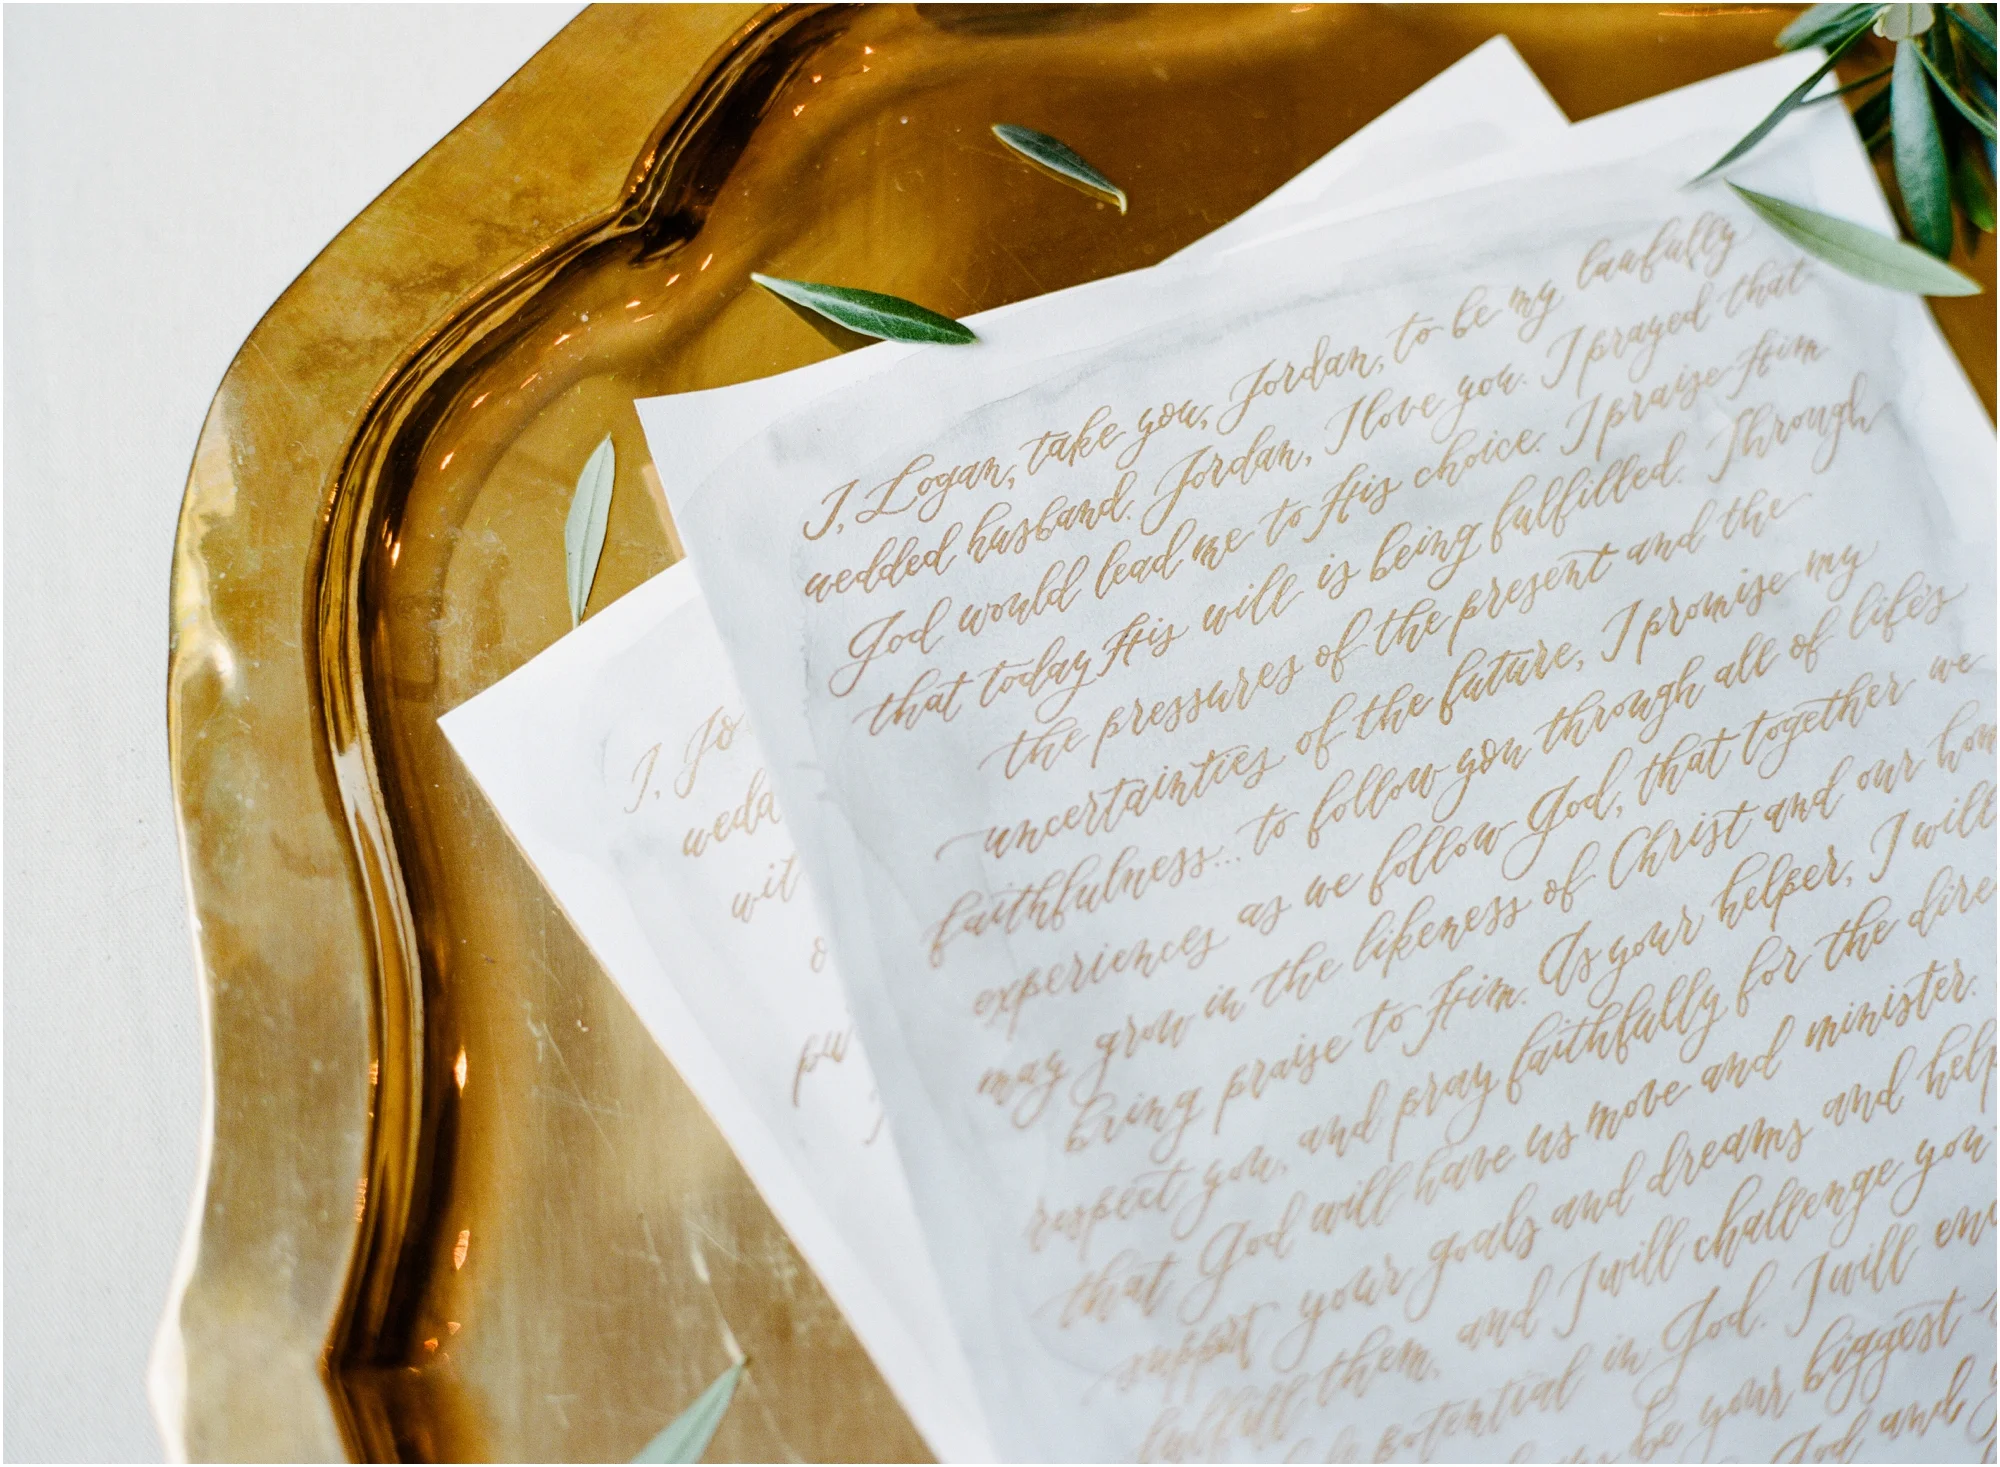 I, Logan, take you, Jordan, to be my lawfully
wedded husband. Jordan, I love you. I prayed that
God would lead me to His choice. I praise Him
that today His will is being fulfilled. Through
the pressures of the present and the
uncertainties of the future, I promise my
faithfulness... to follow you through all of life's
experiences as we follow God, that together we
may grow in the likeness of Christ and our hom
bring praise to Him. As your helper, I will
respect you, and pray faithfully for the dire
that God will have us move and minister.
support your goals and dreams and help
fulfill them, and I will challenge you
potential in God. I will en
be your biggest
God and
I, Jo
wedd
wit
o
pu